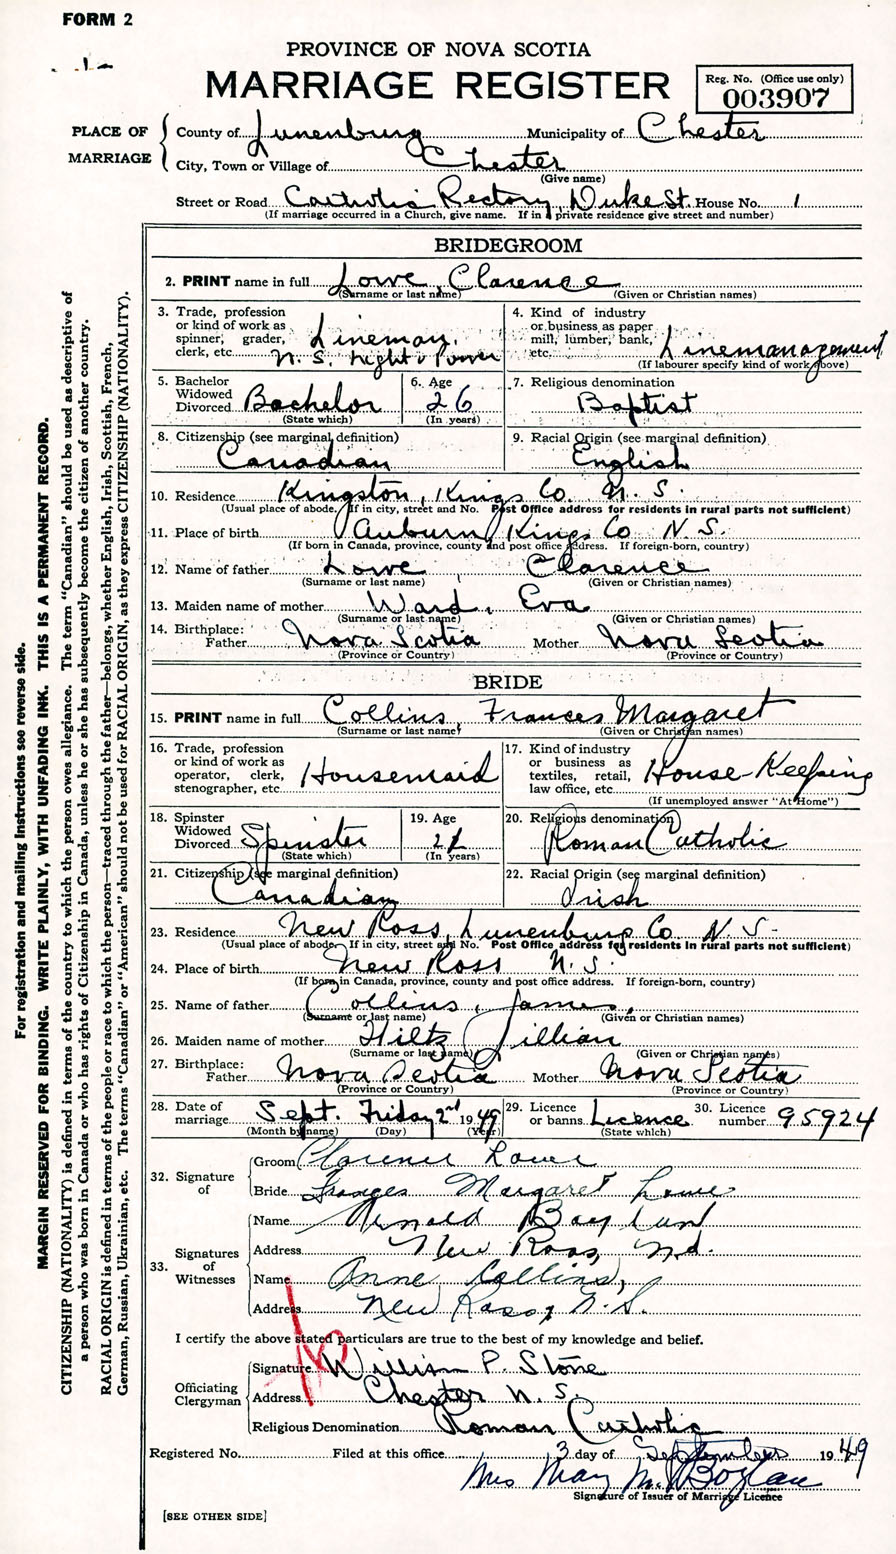 FORM 2
PROVINCE OF NOVA SCOTIA
MARRIAGE REGISTER
Reg. No. (Office use only)
003907
PLACE OF MARRIAGE
County of Lunenburg Municipality of Chester
City, Town or Village of Chester
(Give name)
Street or Road Catholic Rectory, Duke St. House No. 1
(If marriage occurred in a Church, give name. If in private residence give street and number)
BRIDEGROOM
2. PRINT name in full Lowe, Clarence
(Surname or last name) (Given or Christian names)
3. Trade, profession or kind of work as spinner, grader, clerk, etc. Lineman, N. S. Light & Power
4. Kind of industry or business as paper mill, lumber, bank, etc. Linemanagement
(If labourer specify kind of work above)
5. Bachelor Widowed Divorced Bachelor
(State which)
6. Age 26
(In years)
7. Religious denomination Baptist
8. Citizenship (see marginal definition) Canadian
9. Racial Origin (see marginal definition) English
10. Residence Kingston, Kings Co. N. S.
(Usual place of abode. If in city, street and No. Post Office address for residents in rural parts not sufficient)
11. Place of birth Auburn, Kings Co N. S.
(If born in Canada, province, county and post office address. If foreign-born, country)
12. Name of father Lowe, Clarence
(Surname or last name) (Given or Christian names)
13. Maiden name of mother Ward, Eva
(Surname or last name) (Given or Christian names)
14. Birthplace: Father Nova Scotia Mother Nova Scotia
(Province or Country) (Province or Country)
BRIDE
15. PRINT name in full Collins, Frances Margaret
(Surname or last name) (Given or Christian names)
16. Trade, profession or kind of work as operator, clerk, stenographer, etc Housemaid
17. Kind of industry or business as textiles, retail, law office, etc. House-Keeping
(If unemployed answer "At Home")
18. Spinster Widowed Divorced Spinster
(State which)
19. Age 21
(In years)
20. Religious denomination Roman Catholic
21. Citizenship (see marginal definition) Canadian
22. Racial Origin (see marginal definition) Irish
23. Residence New Ross, Lunenburg Co N. S.
(Usual place of abode. If in city, street and No. Post Office address for residents in rural parts not sufficient)
24. Place of birth New Ross N. S.
(If born in Canada, province, county and post office address. If foreign-born, country)
25. Name of father Collins, James,
(Surname or last name) (Given or Christian names)
26. Maiden name of mother Hiltz, Jillian
(Surname or last name) (Given or Christian names)
27. Birthplace: Father Nova Scotia Mother Nova Scotia
(Province or Country) (Province or Country)
28. Date of marriage Sept. Friday 2nd 1949
(Month by name) (Day) (Year)
29. Licence or banns Licence
(State which)
30. Licence number 95924
32. Signature of
Groom Clarence Lowe
Bride Frances Margaret Lowe
33. Signatures of Witnesses
Name Arnold
Address New Ross,
Name Anne Collins,
Address New Ross, N.S.
I certify the above stated particulars are true to the best of my knowledge and belief.
Officiating Clergyman
Signature William P. Stone
Address Chester N. S.
Religious Denomination Roman Catholic
Registered No. Filed at this office 3 day of September 1949
Mrs May M. Boylan
Signature of Issuer of Marriage Licence
[SEE OTHER SIDE]
For registration and mailing instructions see reverse side.
MARGIN RESERVED FOR BINDING. WRITE PLAINLY, WITH UNFADING INK. THIS IS A PERMANENT RECORD.
CITIZENSHIP (NATIONALITY) is defined in terms of the country to which the person owes allegiance. The term "Canadian" should be used as descriptive of
a person who was born in Canada or who has rights of Citizenship in Canada, unless he or she has subsequently become the citizen of another country.
RACIAL ORIGIN is defined in terms of the people or race to which the person—traced through the father—belongs, whether English, Irish, Scottish, French,
German, Russian, Ukrainian, etc. The terms "Canadian" or "American" should not be used for RACIAL ORIGIN, as they express CITIZENSHIP (NATIONALITY).